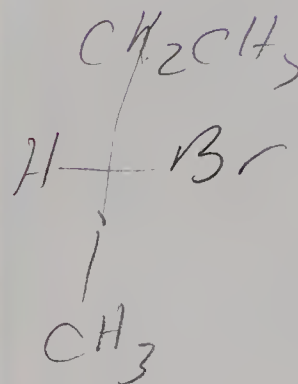 CH2CH3
H Br
CH3